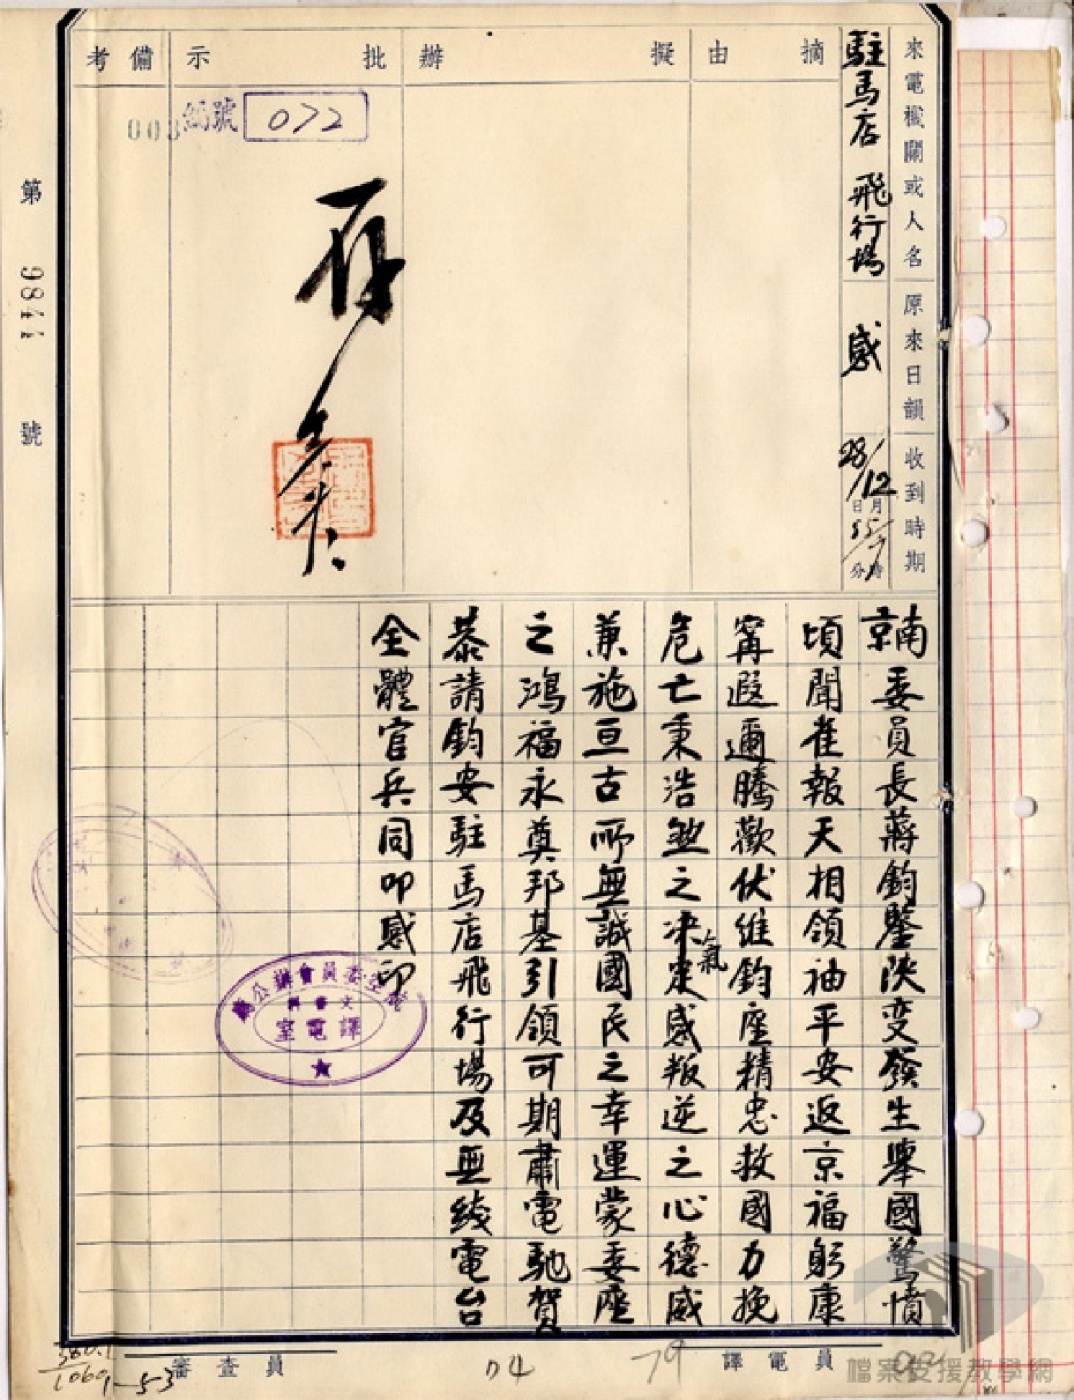 來電機關或人名
原來日韻
收到時期
駐馬店 飛行場
感
28/12
日月
55/7
分時
摘由
擬辦
批示
備考
編號 072
003
存
第 9844 號
南京委員長蔣鈞鑒陝变發生舉國驚憤
頃聞隹報天相領袖平安返京福躬康
甯遐邇騰歡伏維鈞座精忠救國力挽
危亡秉浩然之决定感叛逆之心德威
氣
兼施亘古所無誠國民之幸運蒙委座
之鴻福永奠邦基引領可期肅電馳賀
恭請鈞安駐馬店飛行場及無线電台
全體官兵同叩感印
委員會辦公廳
譯電室
譯電員
審查員
79
04
1060
1-53
檔案支援教學網